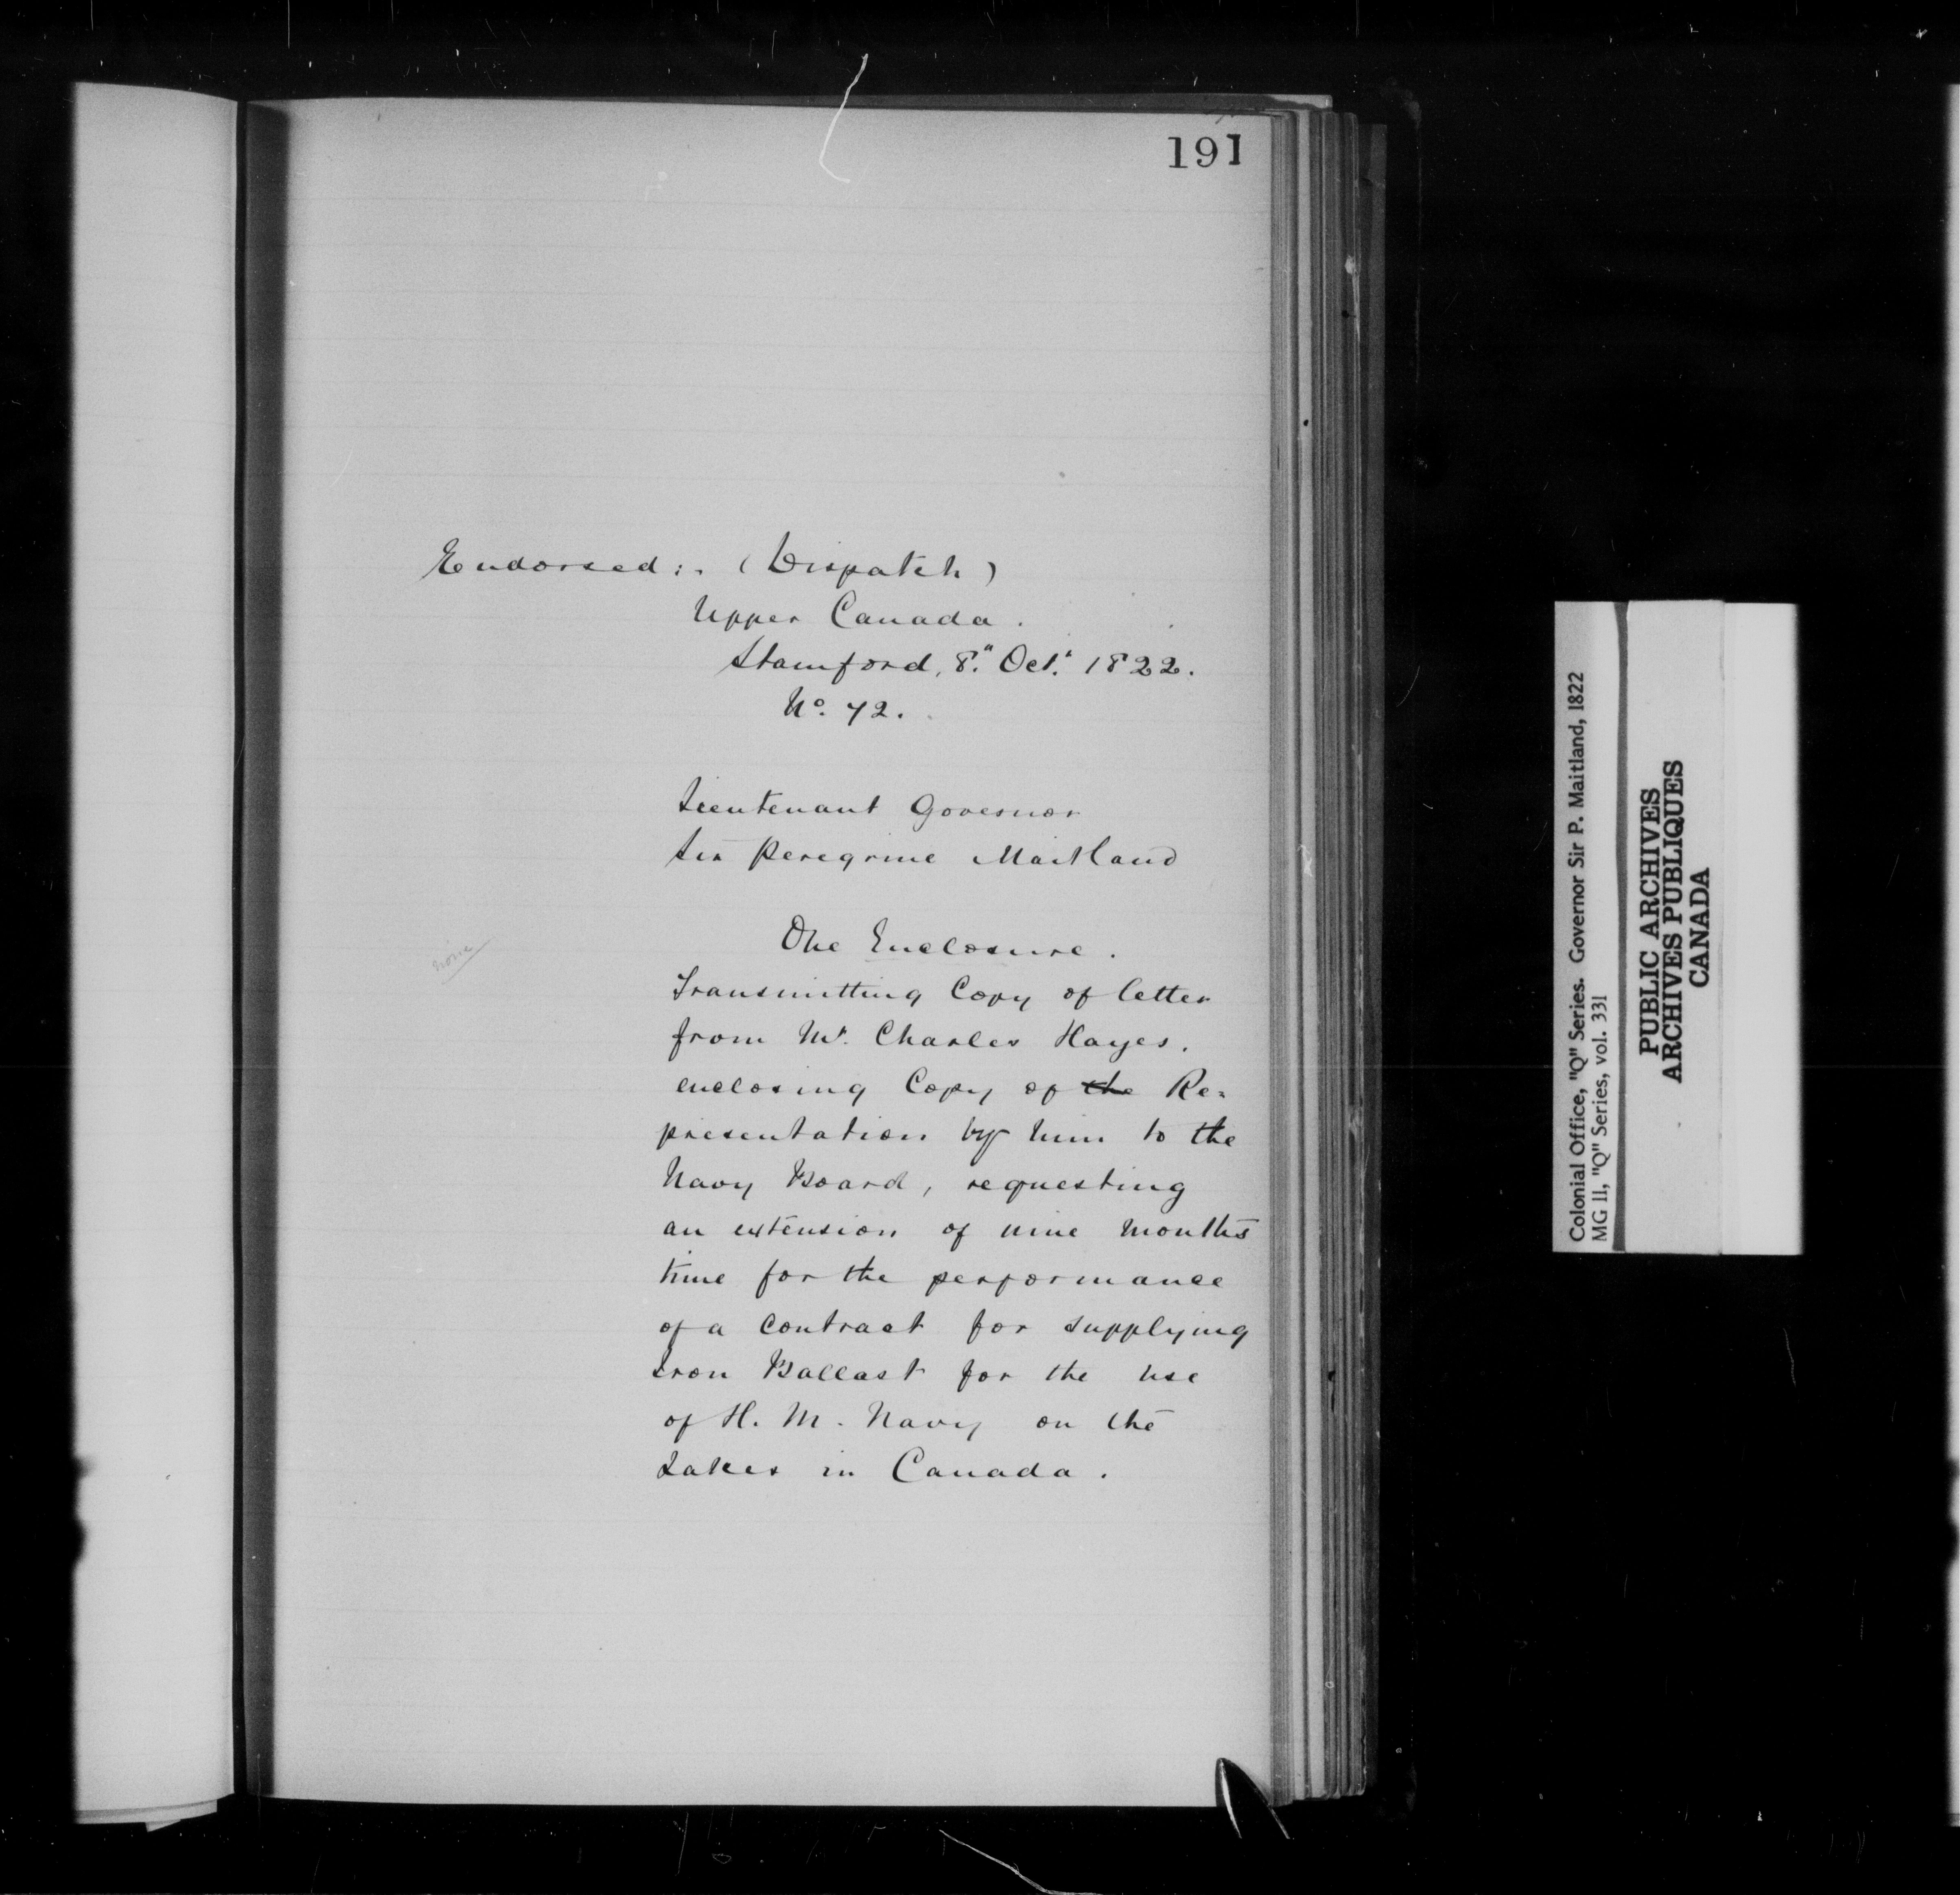 191
Endorsed:- (Dispatch)
Upper Canada.
Stamford, 8." Oct.' 1822.
No. 72.
Lieutenant Governor
Sir Peregrine Maitland
One Enclosure.
Transmitting Copy of letter
from Mr. Charles Hayes.
enclosing Copy of the Re-
presentation by him to the
Navy Board, requesting
an extension of nine months
time for the performance
of a contract for supplying
Iron Ballast for the use
of H. M. Navy on the
Lakes in Canada.
Colonial Office, "Q" Series. Governor Sir P. Maitland, 1822
MG 11, "Q" Series, vol. 331
PUBLIC ARCHIVES
ARCHIVES PUBLIQUES
CANADA